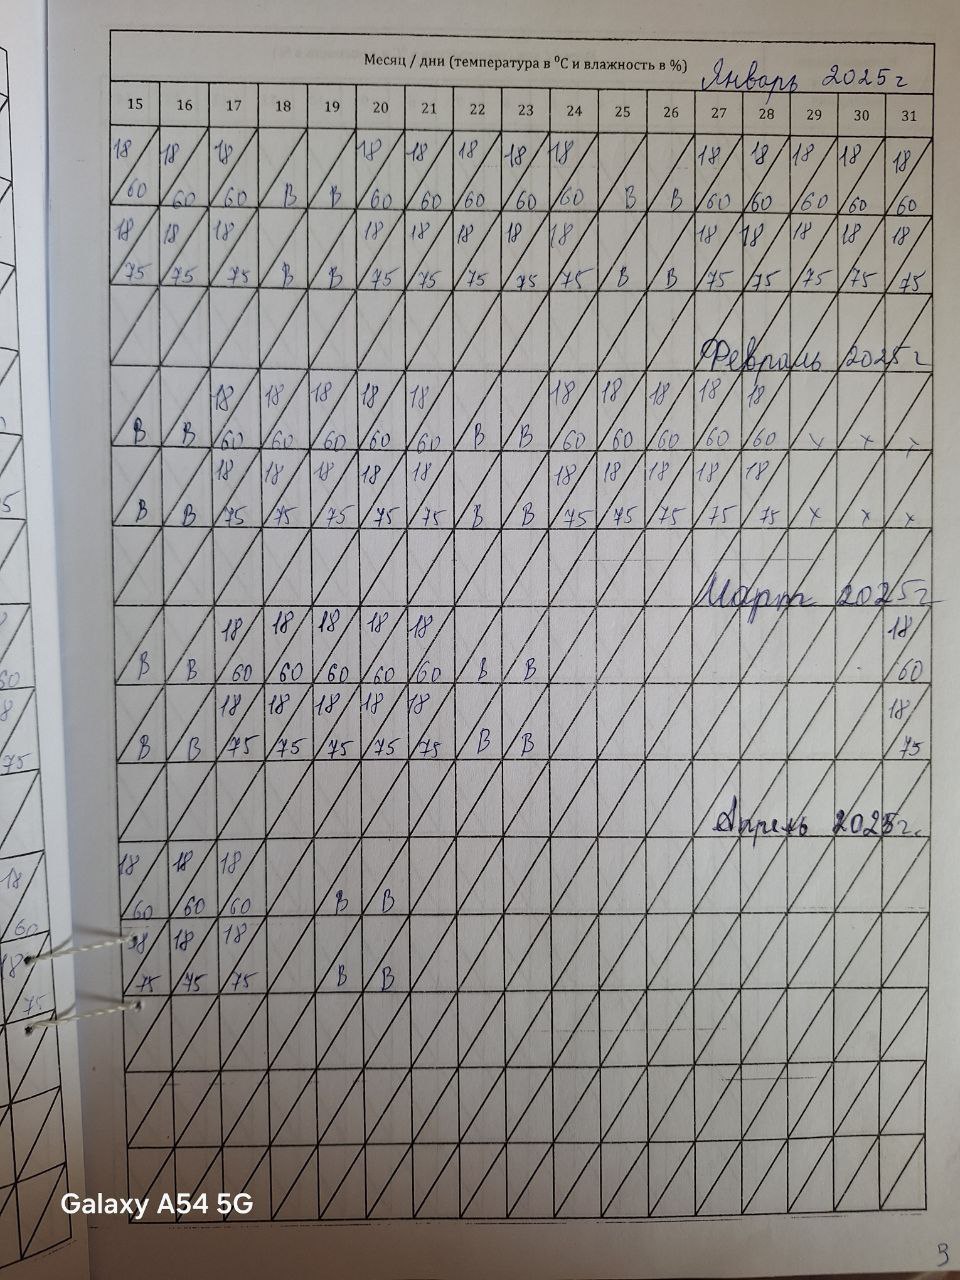 Месяц / дни (температура в ⁰С и влажность в %) Январь 2025г
15 16 17 18 19 20 21 22 23 24 25 26 27 28 29 30 31
18 18 18 18 18 18 18 18 18 18 18 18 18
60 60 60 В В 60 60 60 60 60 В В 60 60 60 60 60
18 18 18 18 18 18 18 18 18 18 18 18 18
75 75 75 В В 75 75 75 75 75 В В 75 75 75 75 75
Февраль 2025г
18 18 18 18 18 18 18 18 18 18
В В 60 60 60 60 60 В В 60 60 60 60 60 х х х
18 18 18 18 18 18 18 18 18 18
В В 75 75 75 75 75 В В 75 75 75 75 75 х х х
Март 2025г
18 18 18 18 18 18
В В 60 60 60 60 60 В В 60
18 18 18 18 18 18
В В 75 75 75 75 75 В В 75
Апрель 2025г.
18 18 18
60 60 60 В В
18 18 18
75 75 75 В В
Galaxy A54 5G